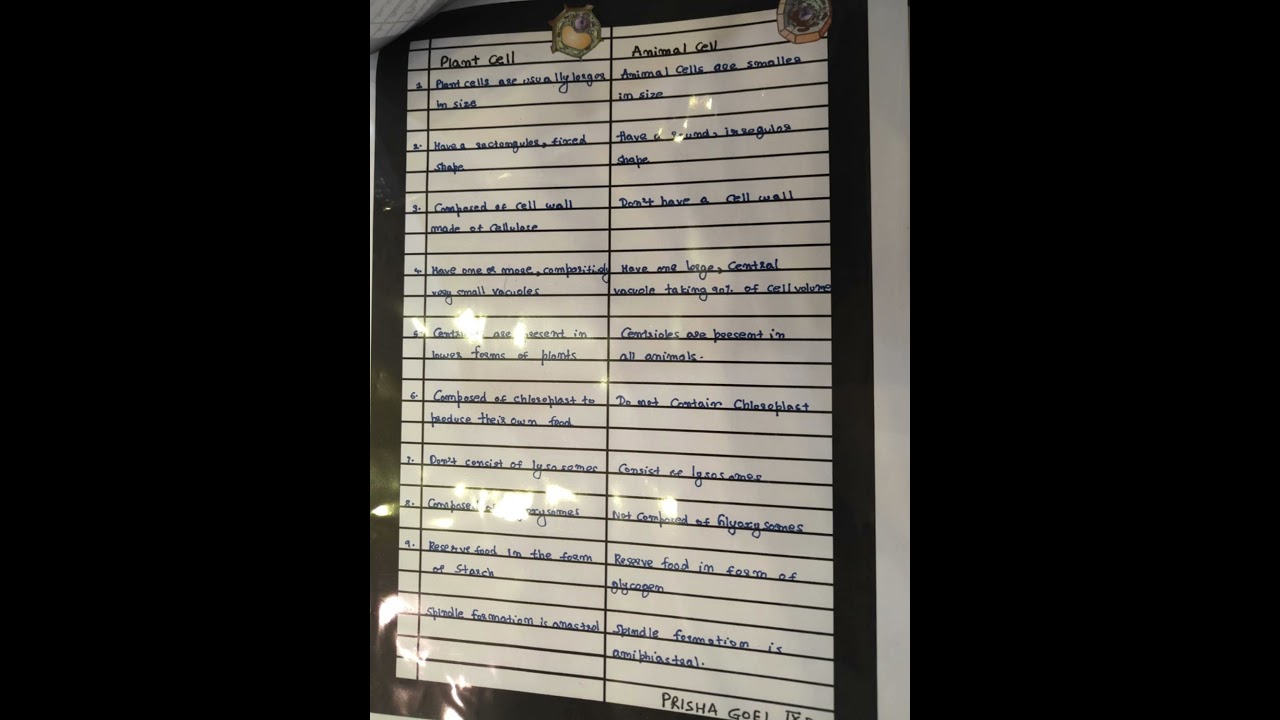 Plant Cell
Animal Cell
1. Plant cells are usually larger
in size
Animal Cells are smaller
in size
2. Have a rectangular, fixed
shape
Have a round, irregular
shape
3. Composed of cell wall
made of cellulose
Don't have a cell wall
4. Have one or more, compositively
very small vacuoles
Have one large, Central
vacuole taking 90% of cell volume
5. are present in
lower forms of plants
Centrioles are present in
all animals.
6. Composed of chloroplast to
produce their own food
Do not Contain Chloroplast
7. Don't consist of lysosomes
Consist of lysosomes
8. Composed of
Not Composed of Glyoxysomes
9. Reserve food in the form
of Starch
Reserve food in form of
glycogen
Spindle formation is anastral
Spindle formation is
amiphiastral.
PRISHA GOEL